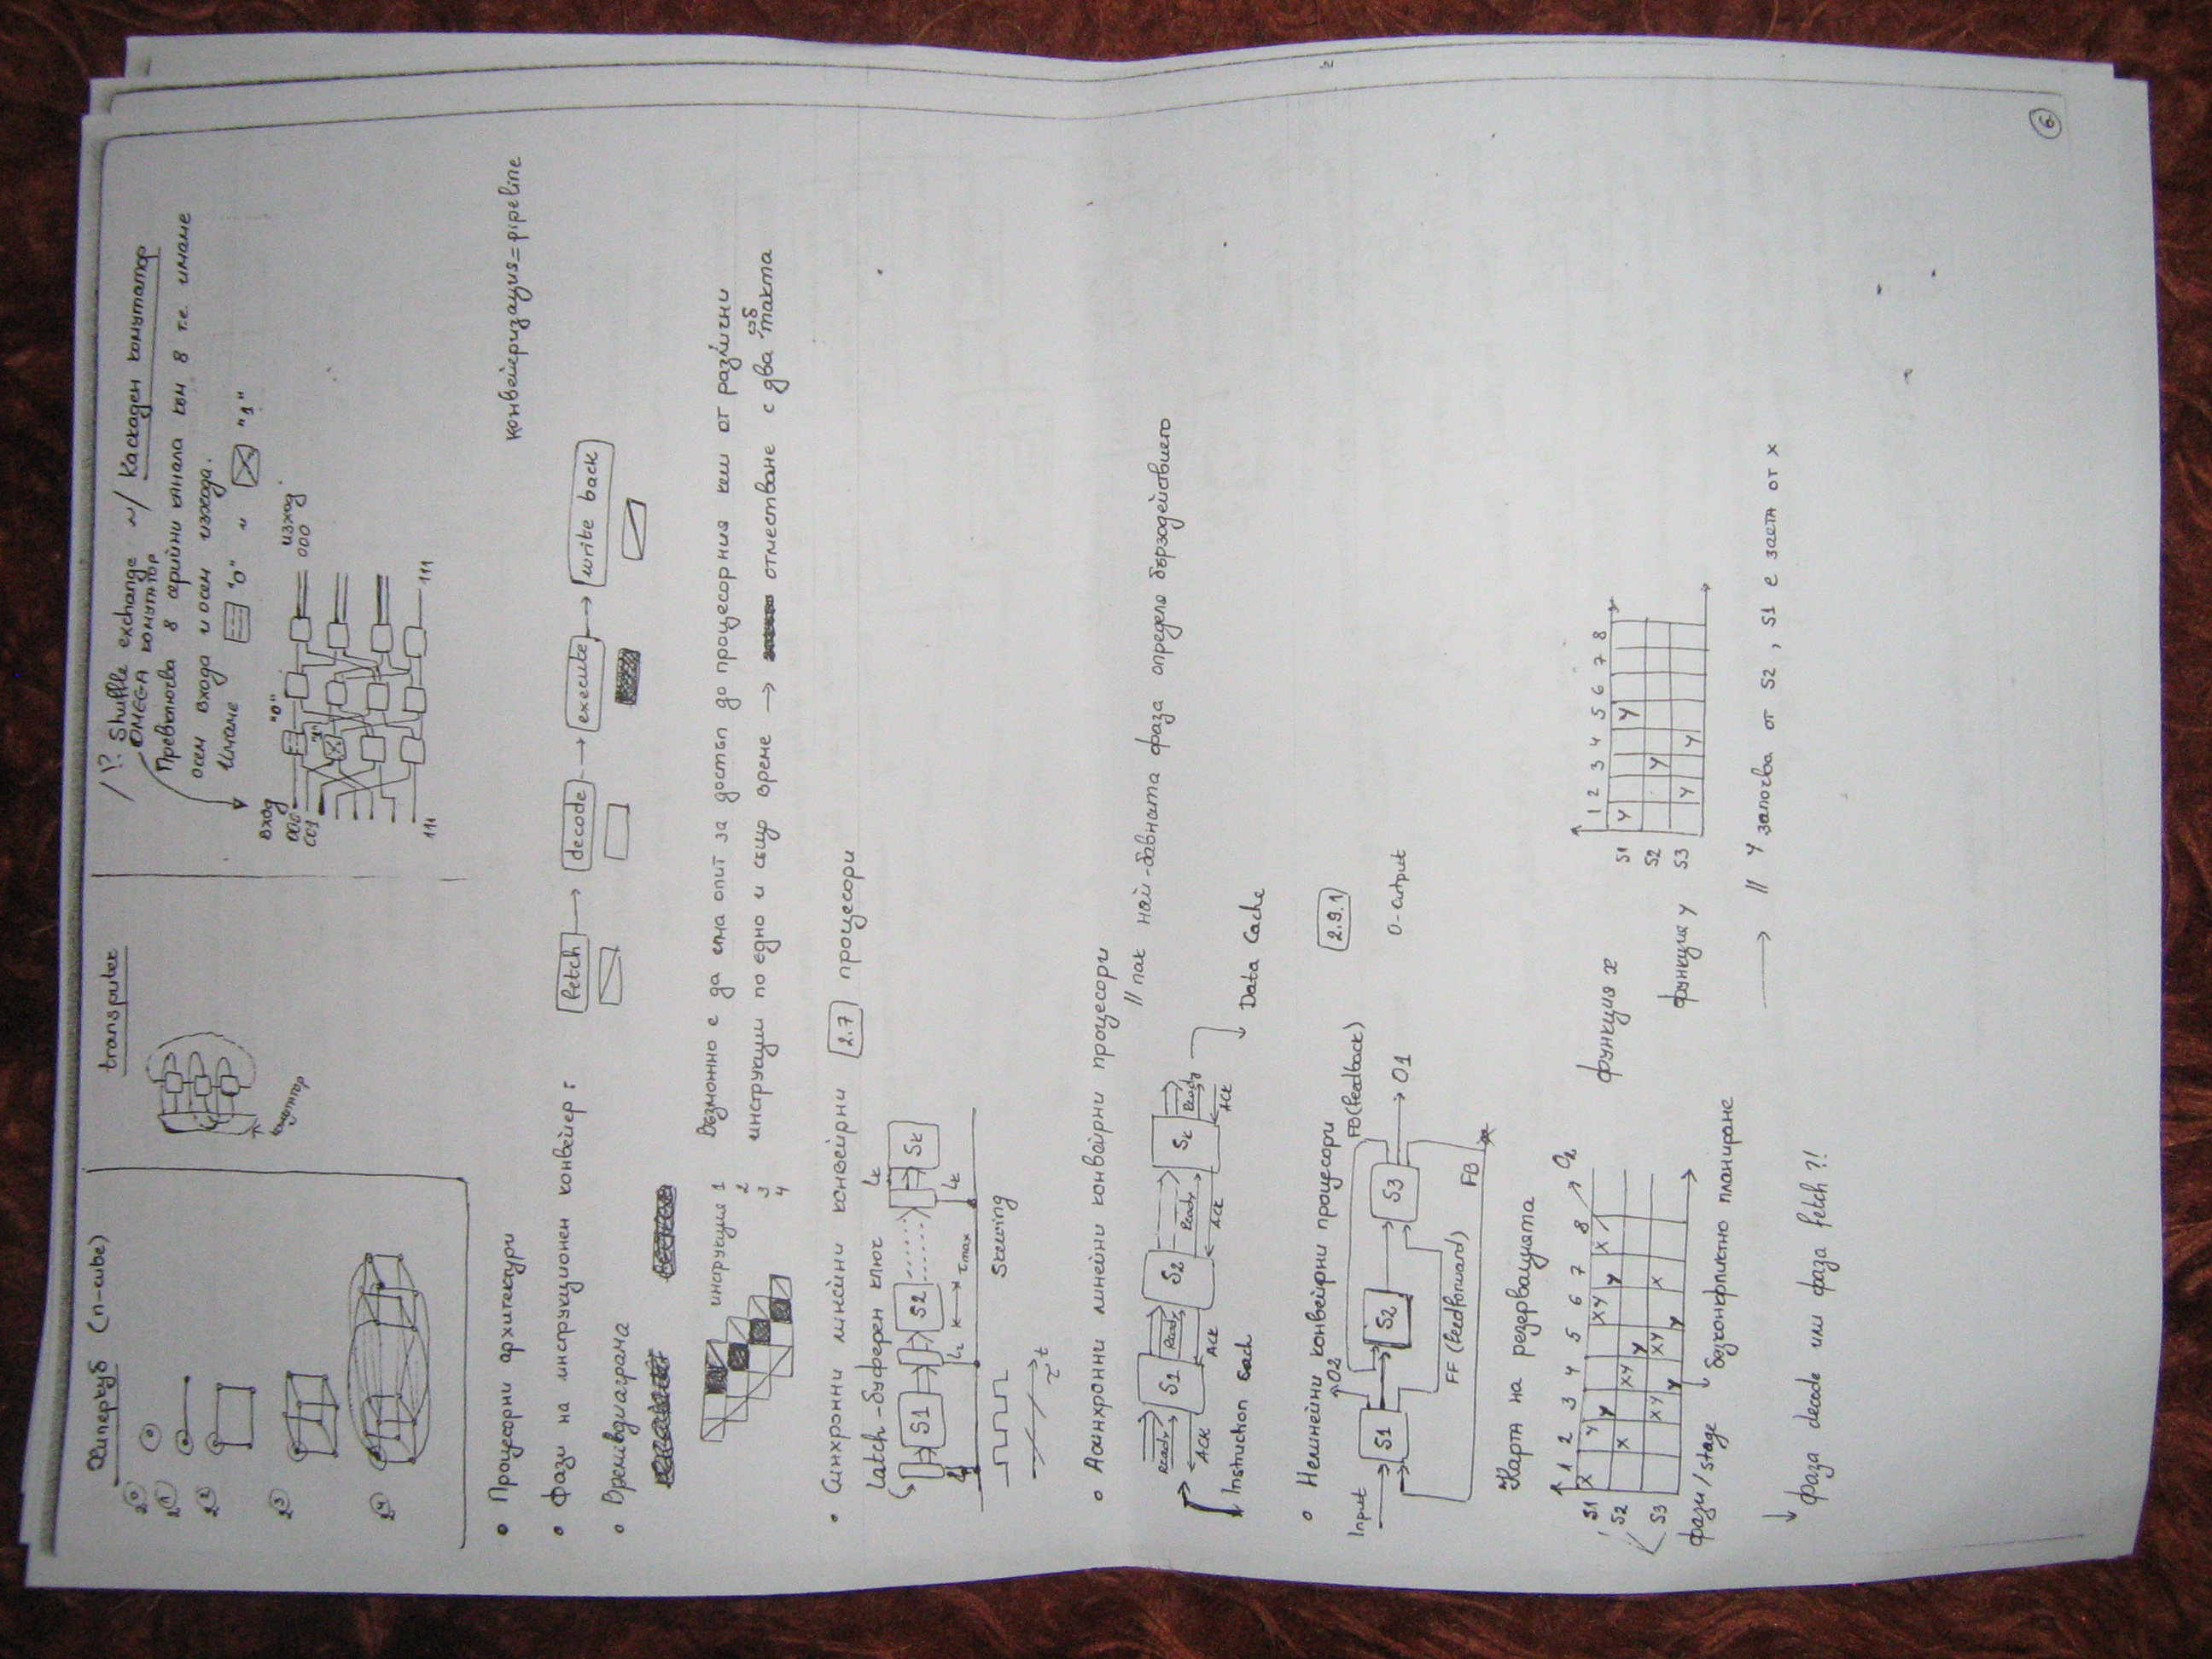 Хиперкуб (n-cube)
2⁰
2¹
2²
2³
2⁴
transputer
комутатор
/!? Shuffle exchange ~/ Каскаден комутатор
OMEGA комутатор
Превключва 8 серийни канала към 8 т.е имаме
осем входа и осем изхода.
Имаме "0" и "1"
вход "0" изход
000 000
001 "1"
111 111
• Процесорни архитектури
конвейеризация=pipeline
• Фази на инструкционен конвейер: fetch → decode → execute → write back
• Времедиаграма
инструкция 1
2
3
4
Възможно е да има опит за достъп до процесорния кеш от различни
инструкции по едно и също време → отместване с два такта
• Синхронни линейни конвейрни 2.7 процесори
Latch-буферен ключ
S1 S2 Sk
L1 L2 τmax Lk
Skewing
τ t
• Асинхронни линейни конвейрни процесори
// пак най-бавната фаза определя бързодействието
Ready S1 Ready S2 Ready Sk Ready
ACK ACK ACK ACK
Instruction Cach
Data Cache
• Нелинейни конвейрни процесори 2.9.1
O2 FB(feedback)
Input S1 S2 S3 O1
O-output
FF (feedforward)
FB
Карта на резервацията
1 2 3 4 5 6 7 8
S1 X Y Y XY Y X
S2 X XY Y
S3 XY Y XY Y X
фази/stage
безконфликтно планиране
функция x
функция y
1 2 3 4 5 6 7 8
S1 Y Y
S2 Y
S3 Y Y
→ // Y започва от S2, S1 е заета от X
фаза decode или фаза fetch?!
6